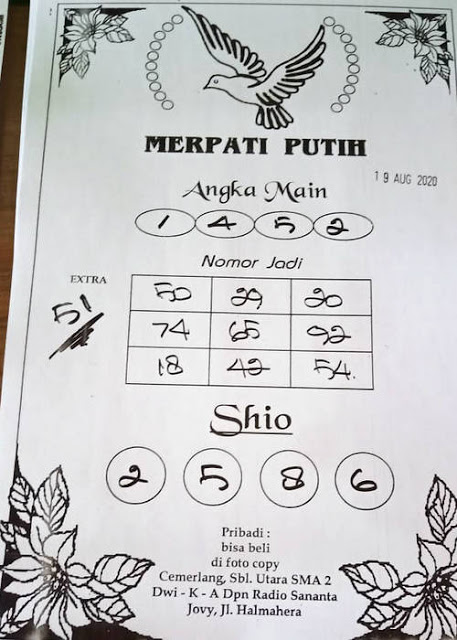 MERPATI PUTIH
19 AUG 2020
Angka Main
1 4 5 2
Nomor Jadi
EXTRA
51
50 29 20
74 65 92
18 42 54
Shio
2 5 8 6
Pribadi :
bisa beli
di foto copy
Cemerlang, Sbl. Utara SMA 2
Dwi - K - A Dpn Radio Sananta
Jovy, Jl. Halmahera